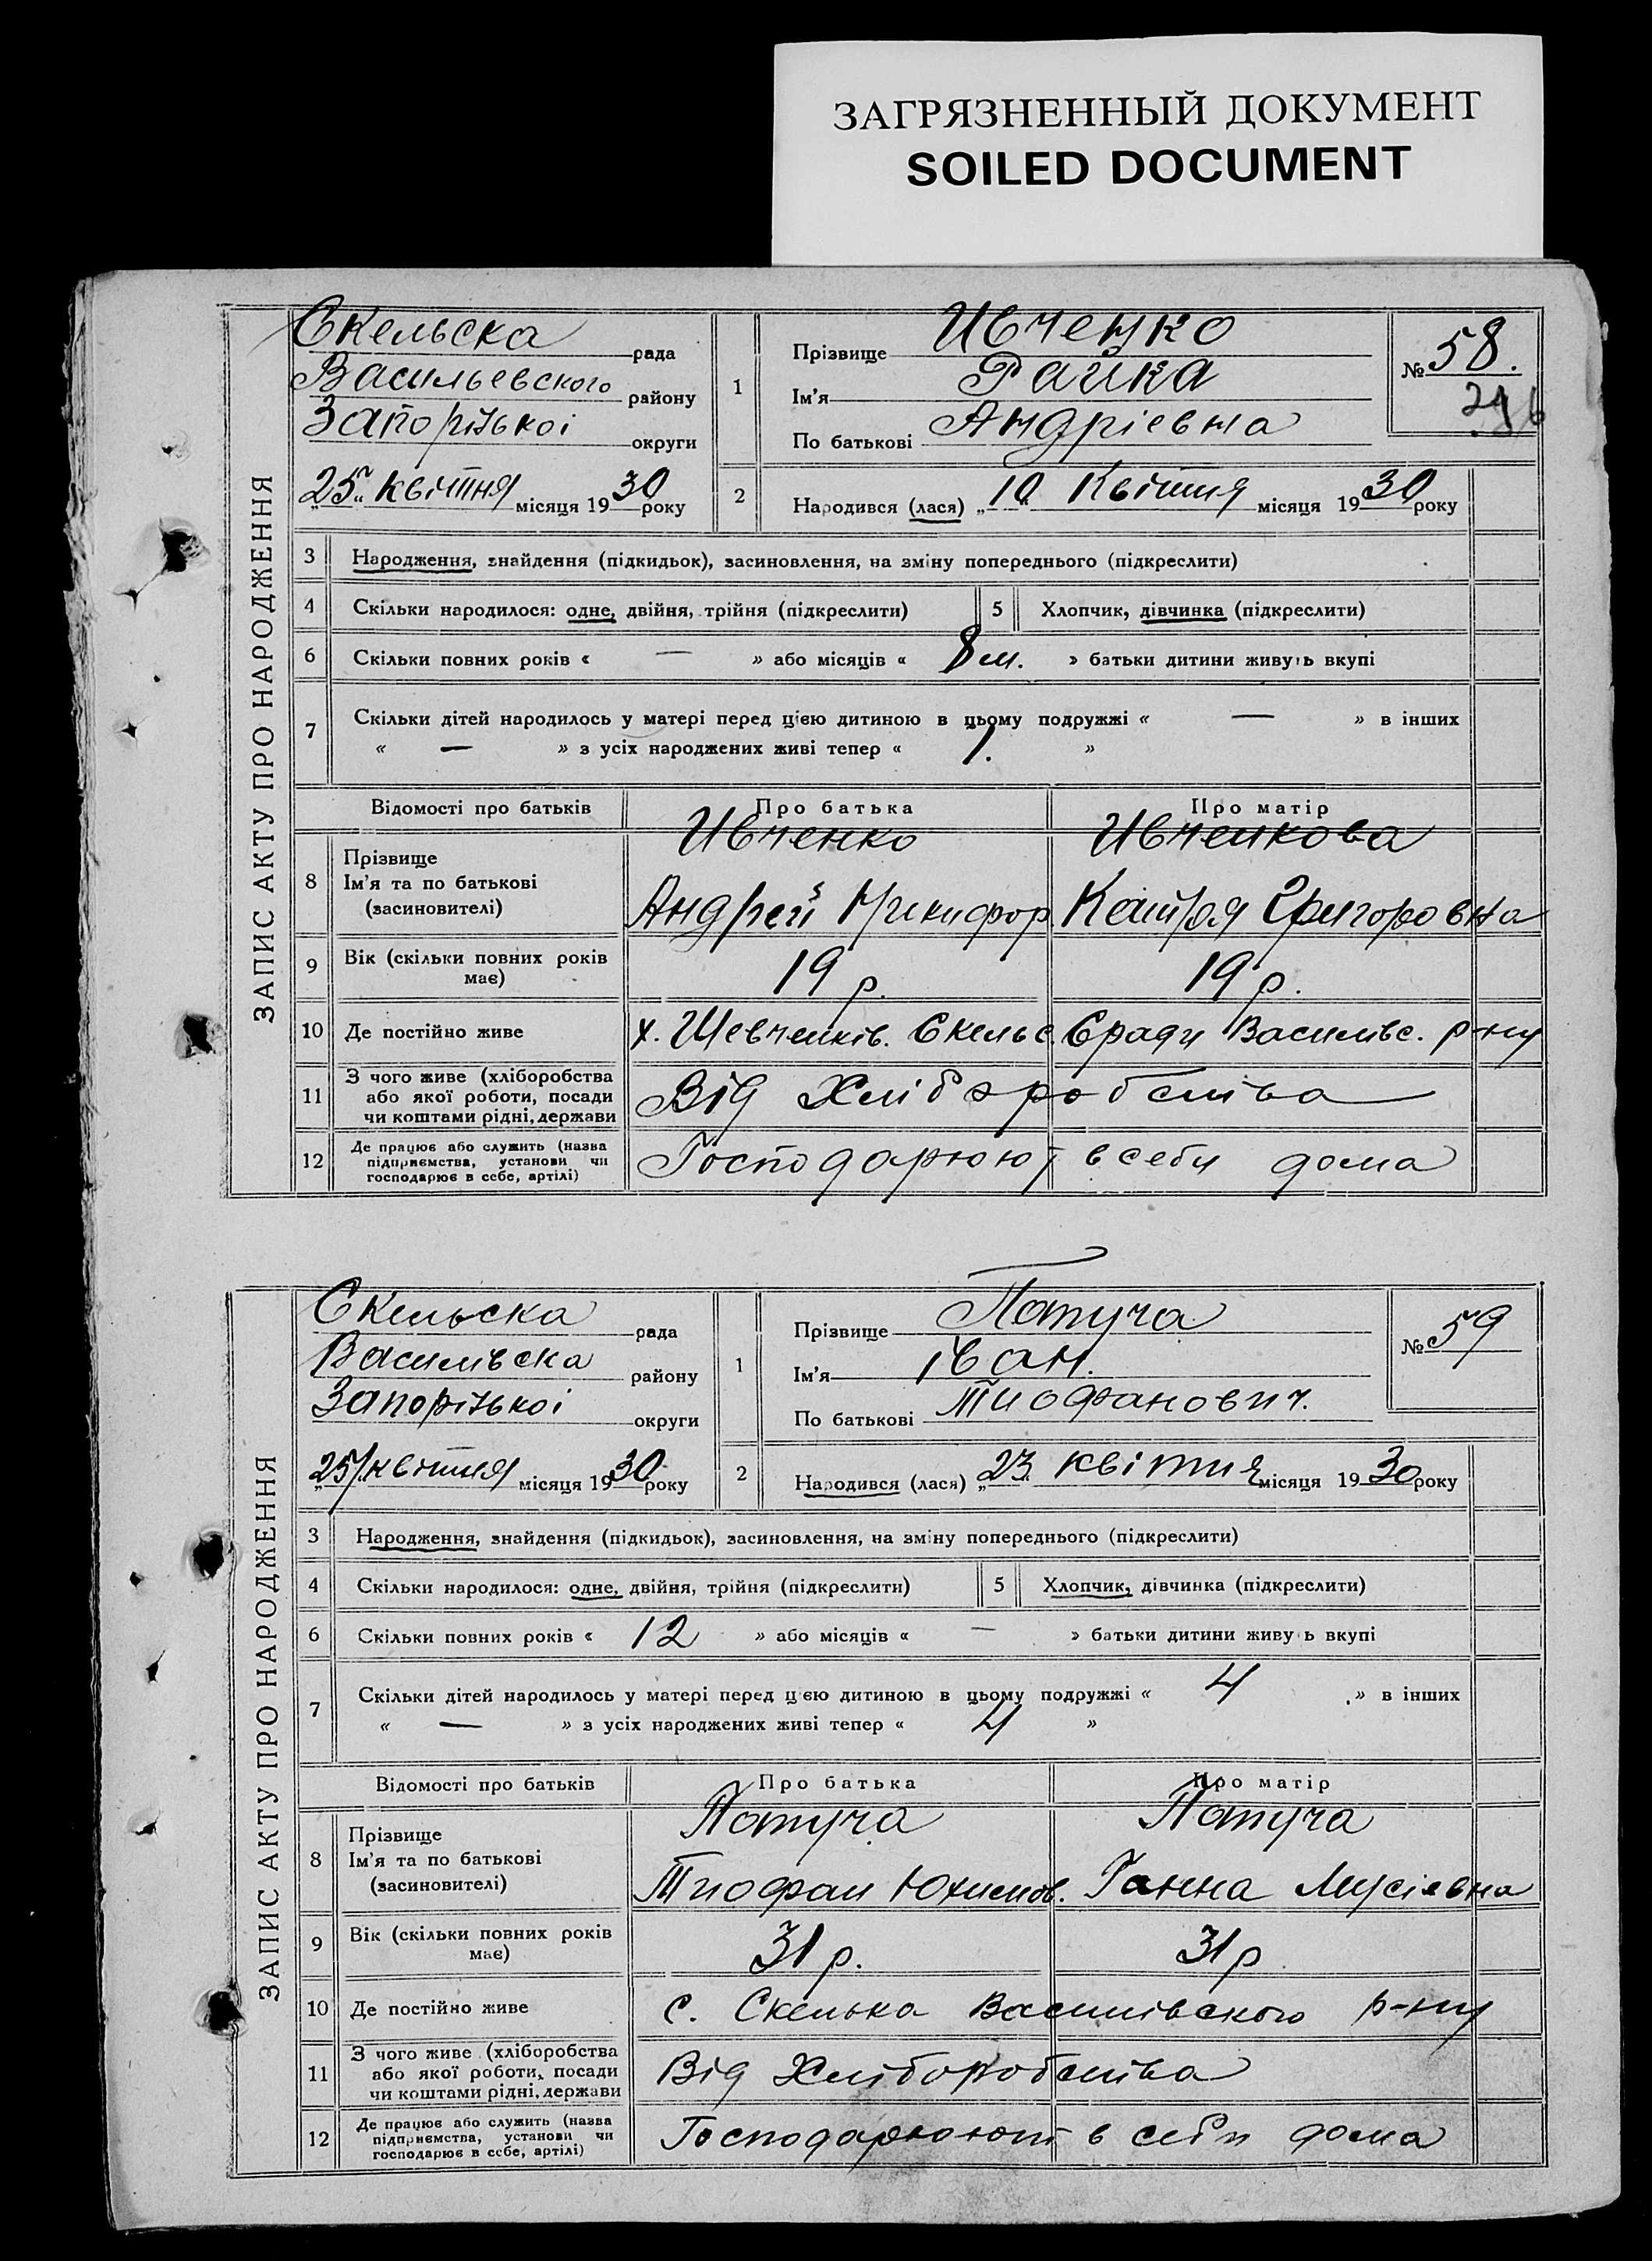 ЗАГРЯЗНЕННЫЙ ДОКУМЕНТ
SOILED DOCUMENT
ЗАПИС АКТУ ПРО НАРОДЖЕННЯ
Скельска рада
Васильевского району
Запорізької округи
„25" квітня місяця 1930 року
1
Прізвище Ивченко
Ім'я Райка
По батькові Андріевна
№ 58.
2
Народився (лася) „10" Квітня місяця 1930 року
3 Народження, знайдення (підкидьок), засиновлення, на зміну попереднього (підкреслити)
4 Скільки народилося: одне, двійня, трійня (підкреслити) 5 Хлопчик, дівчинка (підкреслити)
6 Скільки повних років « — » або місяців « 8 м. » батьки дитини живуть вкупі
7 Скільки дітей народилось у матері перед цією дитиною в цьому подружжі « — » в інших
« — » з усіх народжених живі тепер « 1. »
Відомості про батьків Про батька Про матір
8 Прізвище Ім'я та по батькові (засновителі)
Ивченко Ивченкова
Андрей Микифор. Катря Григоровна
9 Вік (скільки повних років має) 19 р. 19 р.
10 Де постійно живе х. Шевченків. Скельс. Сради Васильвс. р-ну
11 З чого живе (хліборобства або якої роботи, посади чи коштами рідні, держави Від Хліборобства
12 Де працює або служить (назва підприємства, установи чи господарює в себе, артілі) Господарюют в себи дома
ЗАПИС АКТУ ПРО НАРОДЖЕННЯ
Скельска рада
Василівска району
Запорізької округи
„25" квітня місяця 1930 року
1
Прізвище Папуча
Ім'я Іван.
По батькові Тиофанович.
№ 59
2
Народився (лася) „23" квітня місяця 1930 року
3 Народження, знайдення (підкидьок), засиновлення, на зміну попереднього (підкреслити)
4 Скільки народилося: одне, двійня, трійня (підкреслити) 5 Хлопчик, дівчинка (підкреслити)
6 Скільки повних років « 12 » або місяців « — » батьки дитини живуть вкупі
7 Скільки дітей народилось у матері перед цією дитиною в цьому подружжі « 4 » в інших
« — » з усіх народжених живі тепер « 4 »
Відомості про батьків Про батька Про матір
8 Прізвище Ім'я та по батькові (засиновителі)
Папуча Папуча
Тиофан Юхимов. Ганна Мусіевна
9 Вік (скільки повних років має) 31 р. 31 р
10 Де постійно живе с. Скелька Василівского р-ну
11 З чого живе (хліборобства або якої роботи, посади чи коштами рідні, держави Від Хліборобства
12 Де працює або служить (назва підприємства, установи чи господарює в себе, артілі) Господарюют в себи дома